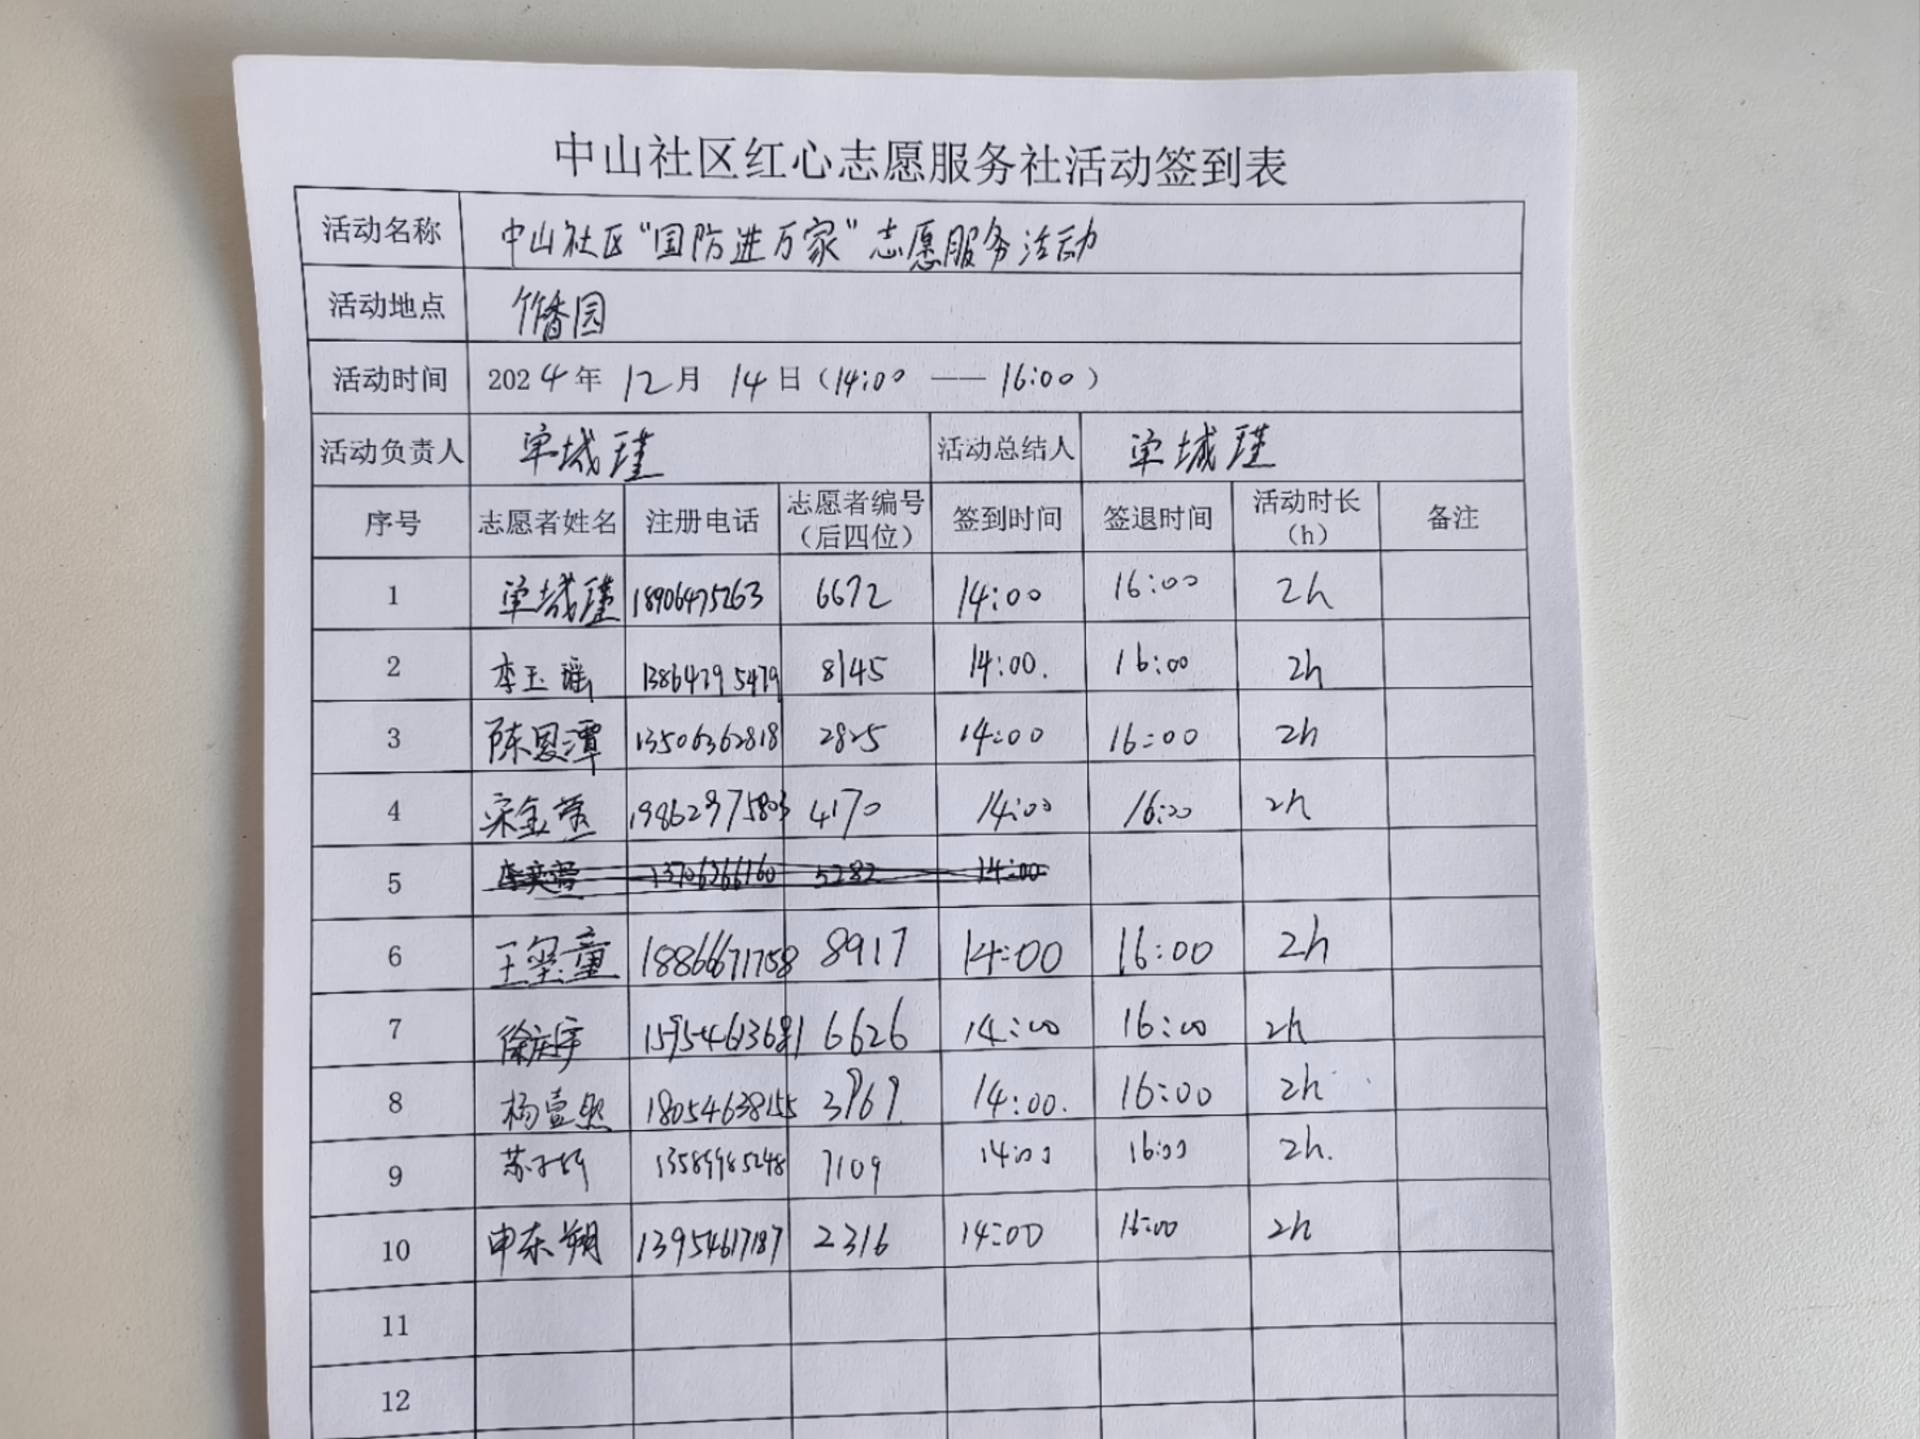 中山社区红心志愿服务社活动签到表
活动名称 中山社区“国防进万家”志愿服务活动
活动地点 竹香园
活动时间 2024年 12月 14日（14:00 —— 16:00）
活动负责人 单城瑾 活动总结人 单城瑾
序号 志愿者姓名 注册电话 志愿者编号（后四位） 签到时间 签退时间 活动时长（h） 备注
1 单城瑾 18906475263 6672 14:00 16:00 2h
2 李玉瑶 13864795479 8145 14:00. 16:00 2h
3 陈恩潭 13506362818 2825 14:00 16:00 2h
4 宋金 4170 14:00 16:00 2h
5 13706366160 5282 14:00
6 王玺童 18866671758 8917 14:00 16:00 2h
7 徐庆宇 6626 14:00 16:00 2h
8 杨壹然 18054638155 3969 14:00. 16:00 2h
9 苏子 13589985248 7109 14:00 16:00 2h.
10 申东朔 13954617187 2316 14:00 16:00 2h
11
12